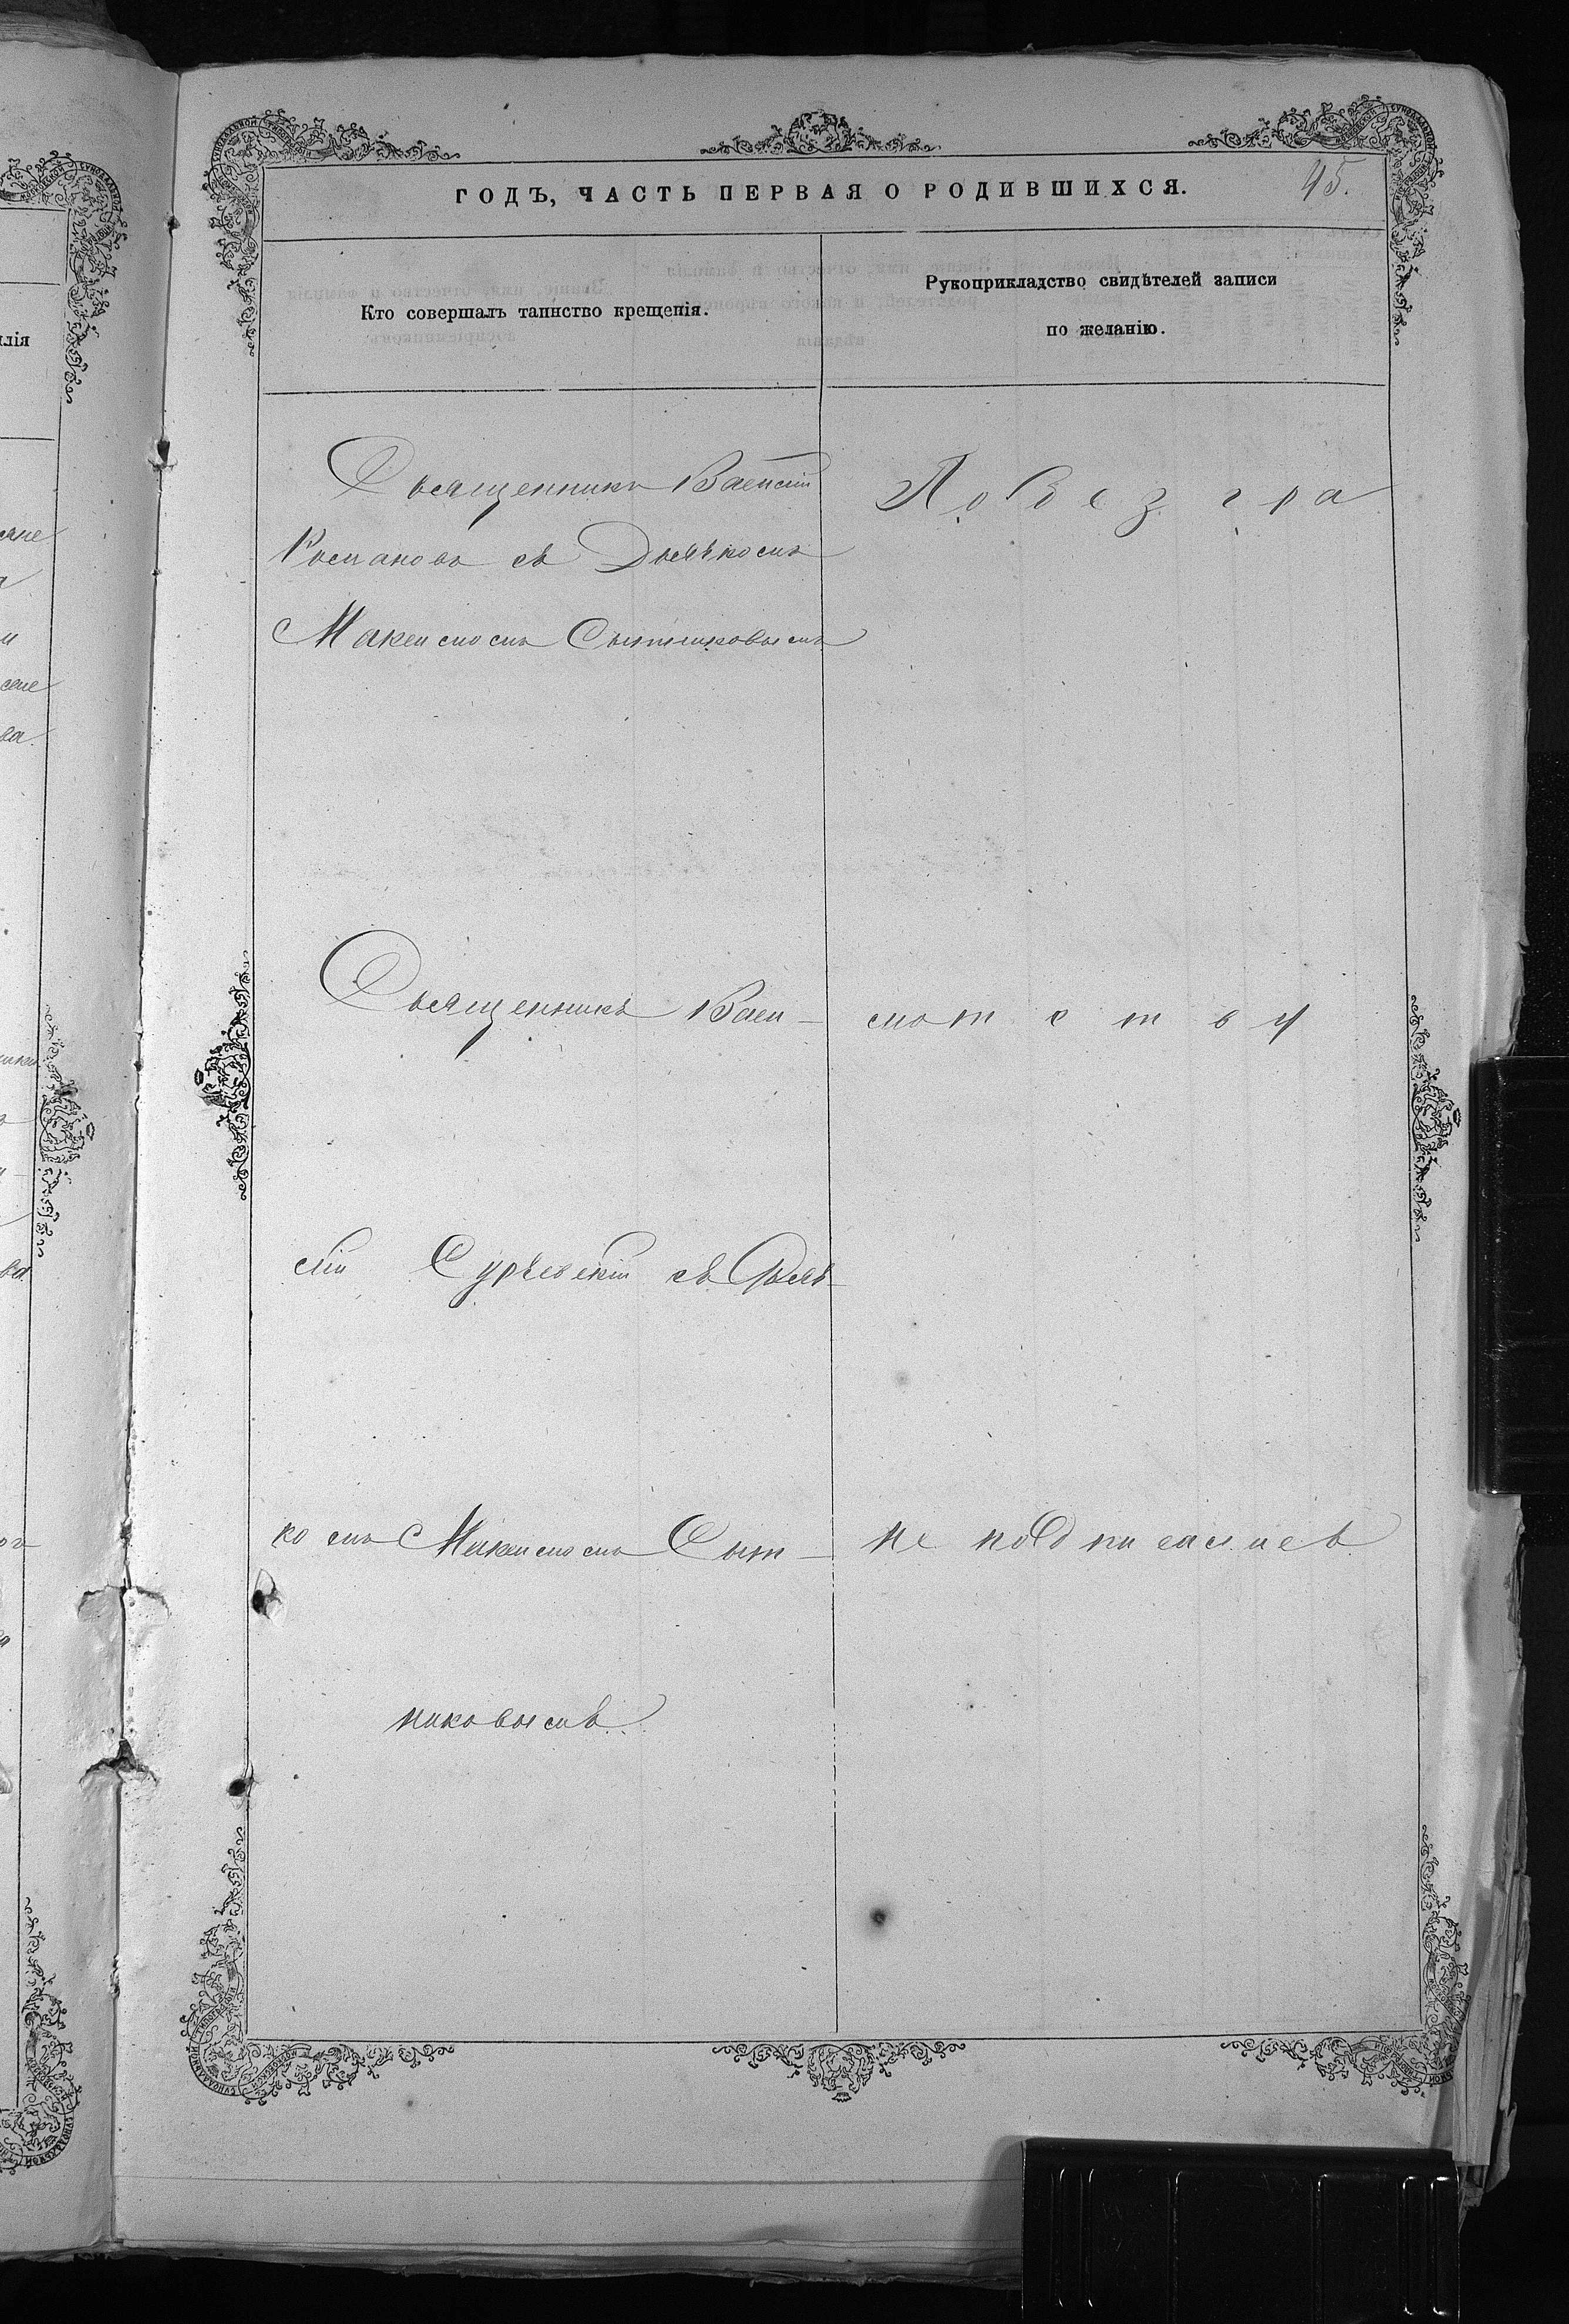 ГОДЪ, ЧАСТЬ ПЕРВАЯ О РОДИВШИХСЯ.
45.
Кто совершалъ таинство крещенія.
Рукоприкладство свидѣтелей записи
по желанію.
Священникъ Василій
съ Дьячкомъ
Максимомъ Сытниковымъ
По безгра
Священникъ Васи-
мотству
лій Сурѣвскій съ Дьяч-
комъ Максимомъ Сыт-
не подписались
никовымъ.
лія